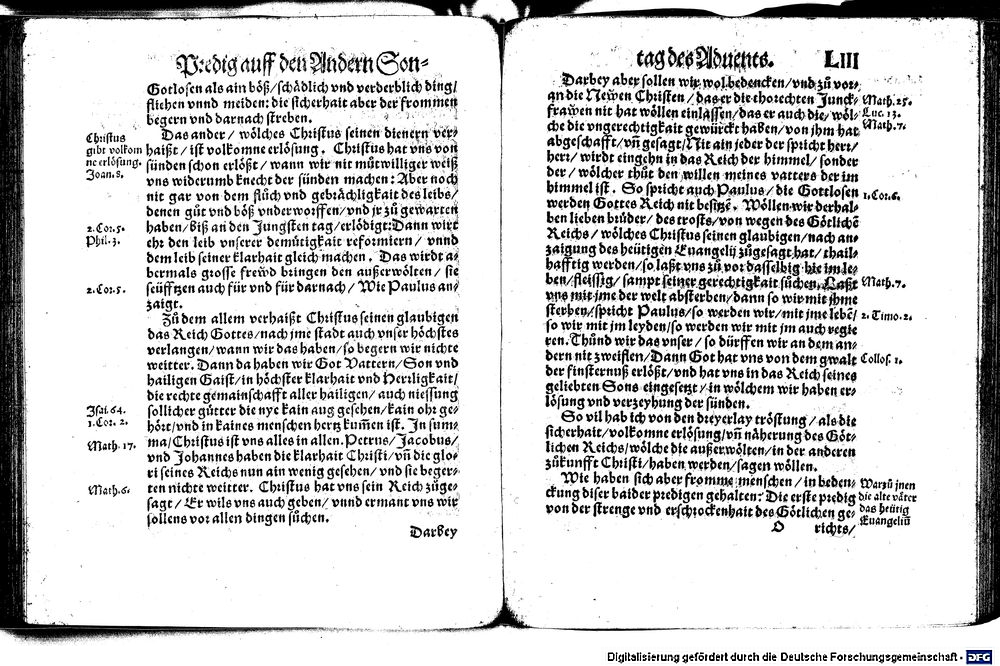 Predig auff den Andern Son-
Gotlosen als ain böß/schådlich vnd verderblich ding/
fliehen vnnd meiden: die sicherhait aber der frommen
begern vnd darnach streben.
Das ander/ wölches Christus seinen dienern ver-
haißt/ ist volkomne erlösung. Christus hat vns von
sünden schon erlößt/ wann wir nit můtwilliger weiß
vns widerumb knecht der sünden machen: Aber noch
nit gar von dem flůch vnd gebrächligkait des leibs/
denen gůt vnd böß vnderworffen/vnd jr zů gewarten
haben/biß an den Jungsten tag/erlödigt: Dann wirt
ehr den leib vnserer demůtigkait reformiern/ vnnd
dem leib seiner klarhait gleich machen. Das wirdt a-
bermals grosse frewd bringen den außerwölten/ sie
seüfftzen auch für vnd für darnach/ Wie Paulus an-
zaigt.
Zů dem allem verhaißt Christus seinen glaubigen
das Reich Gottes/nach jme stadt auch vnser höchstes
verlangen/wann wir das haben/so begern wir nichts
weitter. Dann da haben wir Got Vattern/Son vnd
hailigen Gaist/in höchster klarhait vnd Herrligkait/
die rechte gemainschafft aller hailigen/auch niessung
sollicher gůtter die nye kain aug gesehen/kain ohr ge-
hört/vnd in kaines menschen hertz kum̃en ist. In sum̃-
ma/Christus ist vns alles in allen. Petrus/Jacobus/
vnd Johannes haben die klarhait Christi/vn̄ die glo-
ri seines Reichs nun ain wenig gesehen/vnd sie beger-
ten nichts weitter. Christus hat vns sein Reich zůge-
sagt/Er wils vns auch geben/vnnd ermant vns wir
sollens vor allen dingen sůchen.
Darbey
Christus
gibt volkom
ne erlösung.
Joan.8.
2.Cor.5.
Phil.3.
2.Cor.5.
Isai.64.
1.Cor.2.
Math.17.
Math.6.
tag des Aduents. LIII
Darbey aber sollen wir wol bedencken/vnd zů vor-
an die Newen Christen/das er die thorechten Junck-
frawen nit hat wöllen einlassen/das er auch die/wöl-
che die vngerechtigkait gewürckt haben/von jhm hat
abgeschafft/vn̄ gesagt/Nit ain jeder der spricht herr/
herr/wirdt eingehn in das Reich der himmel/sonder
der/wölcher thůt den willen meines vatters der im
himmel ist. So spricht auch Paulus/die Gottlosen
werden Gottes Reich nit besitzē. Wöllen wir derhal-
ben lieben brůder/des trosts/von wegen des Götlichē
Reichs/wölches Christus seinen glaubigen/nach an-
zaigung des heütigen Euangelij zůgesagt hat/thail-
hafftig werden/so laßt vns zů vor dasselbig hie im le-
ben/fleissig/sampt seiner gerechtigkait sůchen. Laßt
vns mit jme der welt absterben/dann so wir mit jhme
sterben/spricht Paulus/so werden wir/mit jme lebē/
so wir mit im leyden/so werden wir mit im auch regie
ren. Thůnd wir das vnser/so dürffen wir an dem an-
dern nit zweiflen/Dann Got hat vns von dem gwalt
der finsternuß erlößt/vnd hat vns in das Reich seines
geliebten Sons eingesetzt/in wölchem wir haben er-
lösung vnd verzeyhung der sünden.
So vil hab ich von den dreyerlay tröstung/als die
sicherhait/volkomne erlösung/vn̄ näherung des Göt-
lichen Reichs/wölche die außerwölten/in der anderen
zůkunfft Christi/haben werden/sagen wöllen.
Wie haben sich aber fromme menschen/in beden-
ckung diser baider predigen gehalten: Die erste predig
von der strenge vnd erschrockenhait des Götlichen ge-
O richts/
Math.25.
Luc.13.
Math.7.
1.Cor.6.
Math.7.
2.Timo.2.
Collos.1.
Warzů jnen
die alte våter
das heütig
Euangeliū
Digitalisierung gefördert durch die Deutsche Forschungsgemeinschaft - DFG